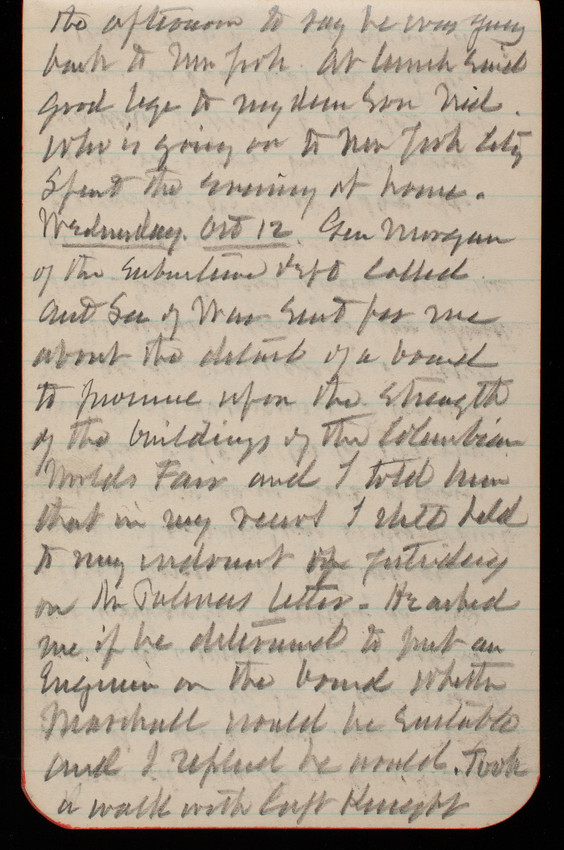 the afternoon to say he was going
back to New York. At lunch said
good bye to my dear Son Ned.
Who is going on to New York City
Spent the evening at home.
Wednesday. Oct 12. Gen Morgan
of the Subsistence Dept called.
Act Sec of War Sent for me
about the detail of a board
to pronounce upon the strength
of the buildings of the Columbian
Worlds Fair and I told him
that in my view I still held
to my indorsement of yesterday
on Mr Palmers letter. He asked
me if he determined to put an
Engineer on the board whether
Marshall would be suitable
and I replied he would. Took
a walk with Capt Knight